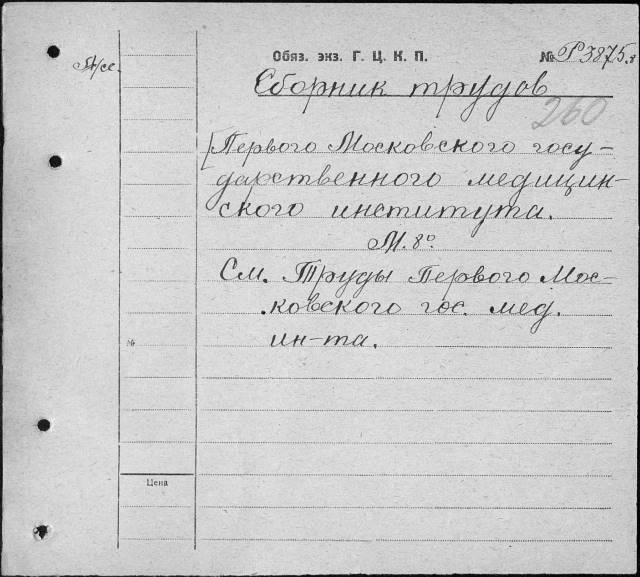 Обяз. экз. Г. Ц. К. П.
№ Р3875.
Сборник трудов
260
[Первого Московского госу-
дарственного медицин-
ского института.
М. 8°
См. Труды Первого Мос-
ковского гос. мед.
ин-та.
№
Цена